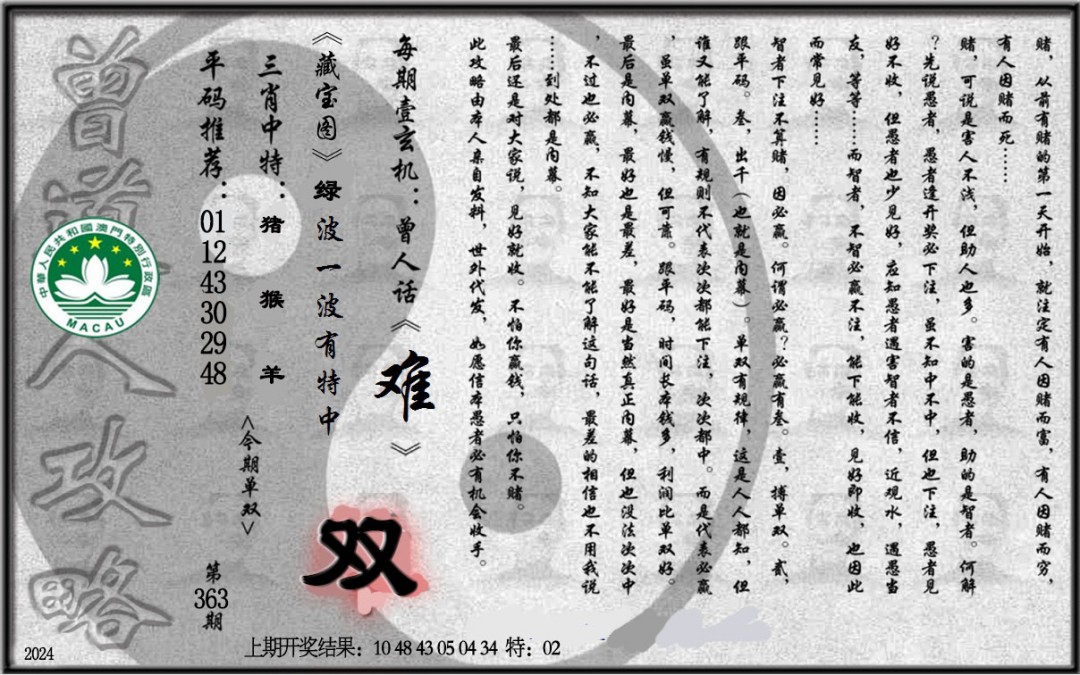 赌，从前有赌的第一天开始，就注定有人因赌而富，有人因赌而穷，
有人因赌而死……
赌，可说是害人不浅，但助人也多。害的是愚者，助的是智者。何解
？先说愚者，愚者逢开奖必下注，虽不知中不中，但也下注，愚者见
好不收，但愚者也少见好，应知愚者遇害智者不信，近观水，遇愚当
友，等等……而智者，不智必赢不注，能下能收，见好即收，也因此
而常见好……
智者下注不算赌，因必赢。何谓必赢？必赢有叁。壹，搏单双。贰，
跟平码。叁，出千（也就是内幕）。单双有规律，这是人人都知，但
谁又能了解，有规则不代表次次都能下注，次次都中。而是代表必赢
，虽单双赢钱慢，但可靠。跟平码，时间长本钱多，利润比单双好。
最后是内幕，最好也是最差，最好是当然真正内幕，但也没法次次中
，不过也必赢，不知大家能不能了解这句话，最差的相信也不用我说
……到处都是内幕。
最后还是对大家说，见好就收。不怕你赢钱，只怕你不赌。
此攻略由本人亲自发料，世外代发，如愿信本愚者必有机会收手。
每期壹玄机：曾人话《难》
《藏宝图》绿波一波有特中
三肖中特：猪 猴 羊
<今期单双>
双
平码推荐：01 12 43 30 29 48
第363期
曾道人攻略
中華人民共和國澳門特別行政區
MACAU
2024
上期开奖结果：10 48 43 05 04 34 特：02